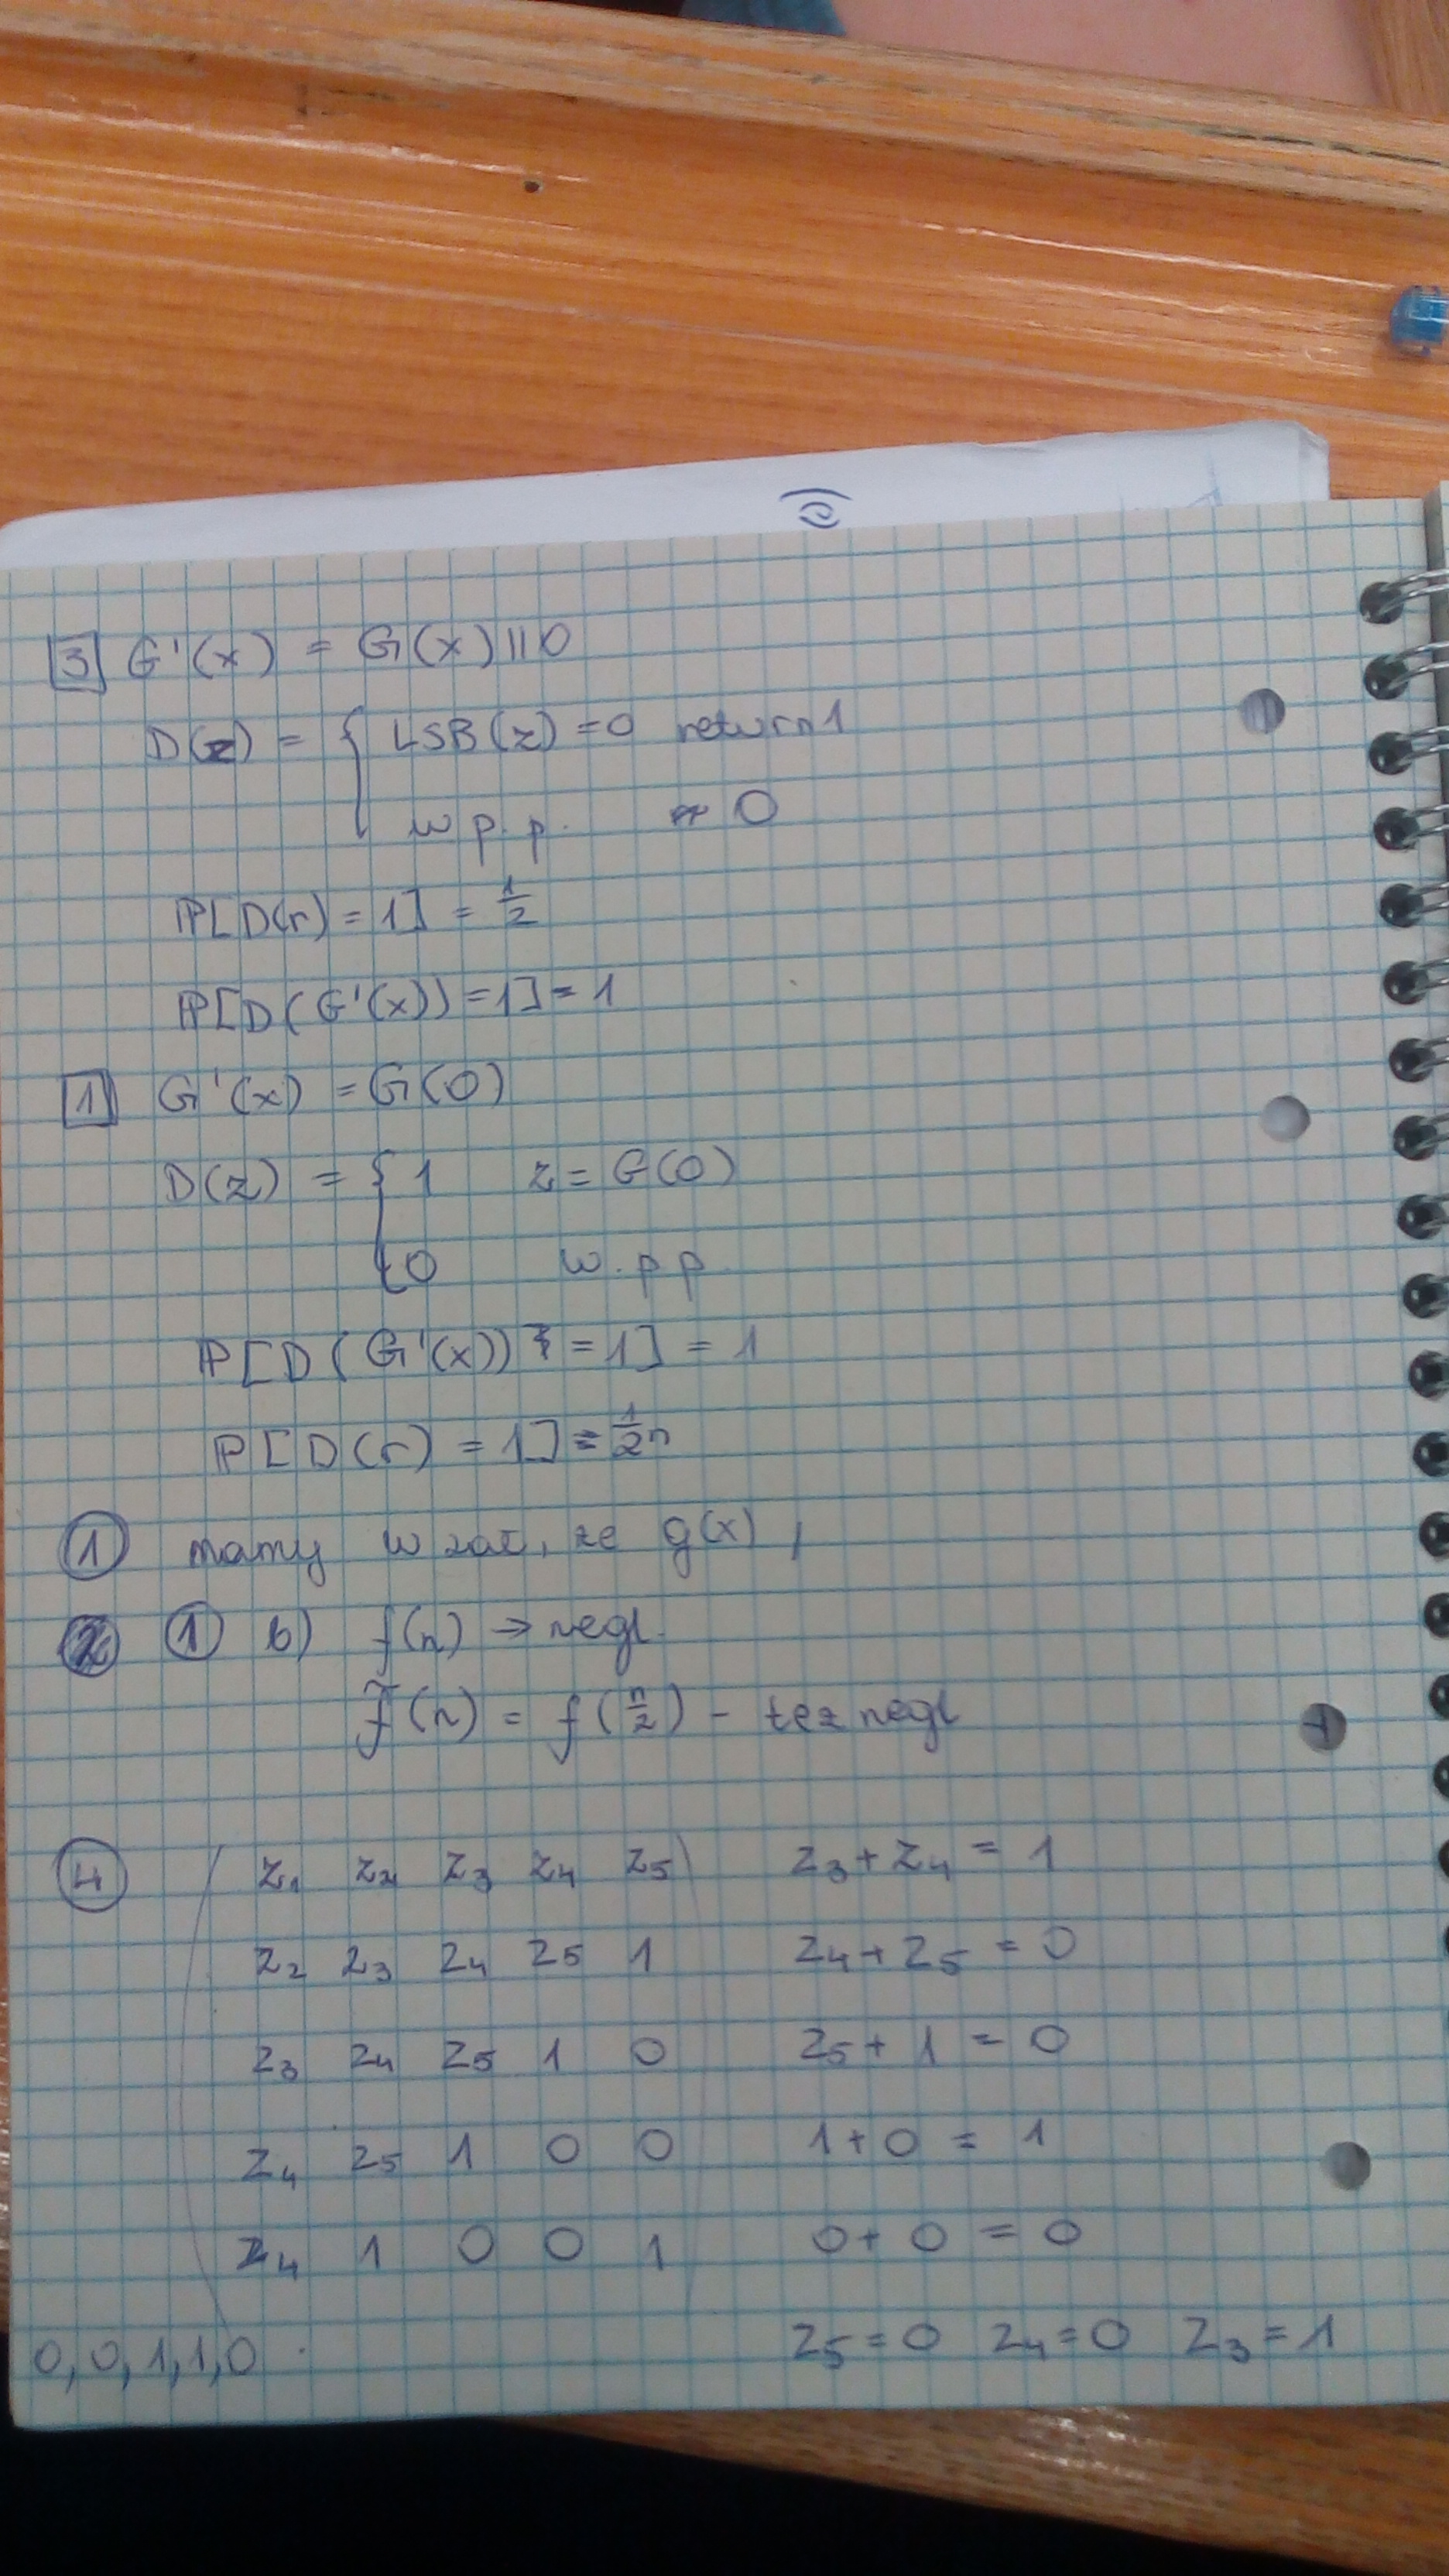 3 G'(x) = G(x)||0
D(z) = { LSB(z)=0 return 1
w p. p. 0
P[D(r)=1] = 1/2
P[D(G'(x))=1] = 1
1 G'(x) = G(0)
D(z) = { 1 z = G(0)
0 w. p p.
P[D(G'(x)) = 1] = 1
P[D(r) = 1] = 1/2n
1 mamy w zał, że g(x),
1 b) f(n) → negl.
f̃(n) = f(n/2) - też negl
4 z₁ z₂ z₃ z₄ z₅ z₃+z₄ = 1
z₂ z₃ z₄ z₅ 1 z₄+z₅ = 0
z₃ z₄ z₅ 1 0 z₅+1 = 0
z₄ z₅ 1 0 0 1+0 = 1
z₄ 1 0 0 1 0+0 = 0
0,0,1,1,0 z₅=0 z₄=0 z₃=1